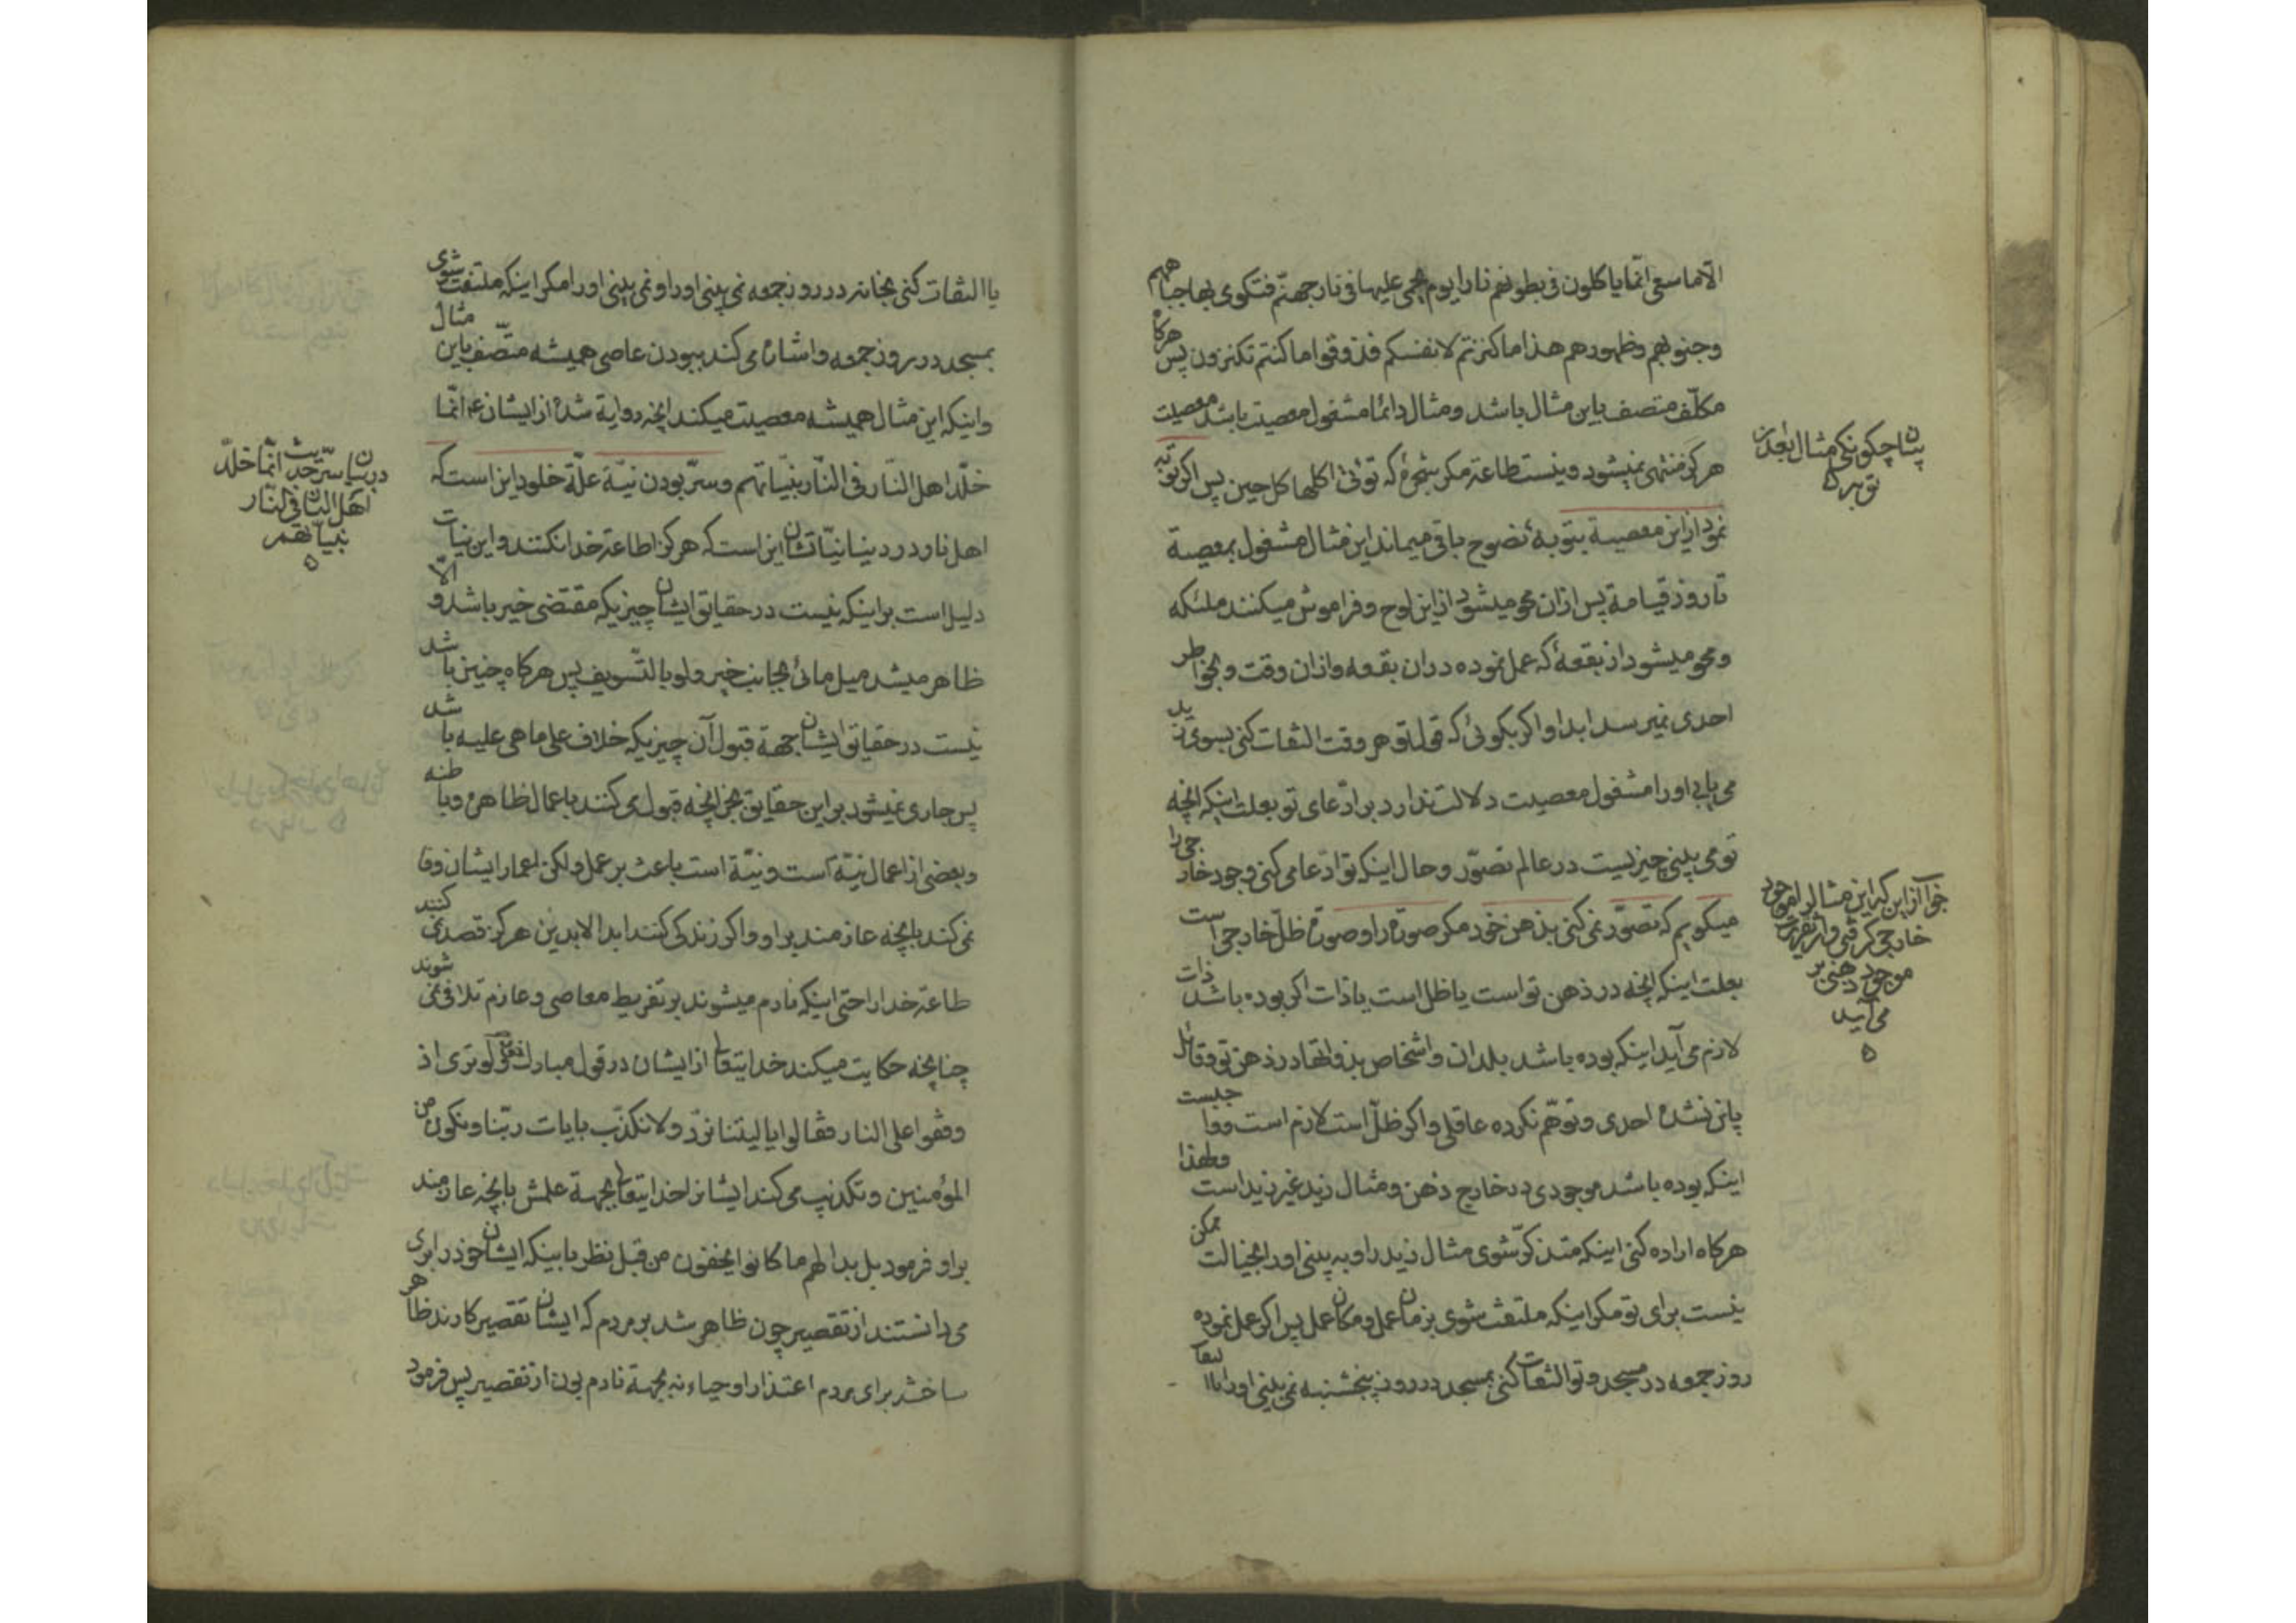 الا ما سعی انّما یاکلون فی بطونهم نارا یوم یحمی علیها فی نار جهنّم فتکوی بها جباههم
وجنوبهم وظهورهم هذا ما کنزتم لانفسکم فذوقوا ما کنتم تکنزون پس هرکاه
مکلّف متصف باین مثال باشد ومثال دائما مشغول معصیت باشد معصیت
هرکز منتهی نمیشود ونیست طاعة مکر شجرهٔ که تؤتی اکلها کل حین پس اکر توبه
نمود از این معصیة بتوبهٔ نصوح باقی میماند این مثال مشغول بمعصیة
تا روز قیامة پس ازان محو میشود از این لوح وفراموش میکنند ملئکه
ومحو میشود از بقعهٔ که عمل نموده دران بقعه وازان وقت وبخواطر
احدی نمیرسد ابدا واکر بکوئی که قول تو هر وقت التفات کنی بسوی زید
می یابی اورا مشغول معصیت دلالت ندارد بر ادّعای تو بعلت اینکه انچه
تو می بینی چیزیست در عالم تصوّر وحال اینکه تو ادّعا می کنی وجود خارجی را
میکویم که تصوّر نمی کنی بذهن خود مکر صورة را وصورة ظلّ خارجی است
بعلت اینکه انچه در ذهن تو است یا ظل است یا ذات اکر بوده باشد ذات
لازم می آید اینکه بوده باشد بلدان واشخاص بذواتها در ذهن تو وقائل
باین نشده احدی وتوهّم نکرده عاقلی واکر ظلّ است لازم است وواجبست
اینکه بوده باشد موجودی در خارج ذهن ومثال زید غیر زید است ولهذا
هرکاه اراده کنی اینکه متذکّر شوی مثال زید را وبه بینی اورا بخیالت ممکن
نیست برای تو مکر اینکه ملتفت شوی بزمان عمل ومکان عمل پس اکر عمل نموده
روز جمعه در مسجد وتو التفات کنی بمسجد در روز پنجشنبه نمی بینی اورا
پنا چکونکی مثال بعد از
توبه
جواب از این که این مثال را موجود
خارجی کرفتی واز تقریرت
موجود ذهنی بر
می آید
یا التفات کنی بخانه در روز جمعه نمی بینی اورا ونمی بینی اورا مکر اینکه ملتفت شوی
بمسجد در روز جمعه واشاره می کند ببودن عاصی همیشه متّصف باین مثال
واینکه این مثال همیشه معصیت میکند انچه روایة شده از ایشان ع انّما
خلّد اهل النّار فی النّار بنیّاتهم وسرّ بودن نیّة علّة خلود این است که
اهل نار در دنیا نیّاتشان این است که هرکز اطاعة خدا نکنند واین نیات
دلیل است بر اینکه نیست در حقایق ایشان چیزیکه مقتضی خیر باشد والّا
ظاهر میشد میل مائی بجانب خیر ولو بالتّسویف پس هرکاه چنین باشد
نیست در حقایق ایشان جهة قبول آن چیزیکه خلاف علی ما هی علیه باشد
پس جاری نمیشود بر این حقایق بجز انچه قبول می کنند باعمال ظاهره وباطنه
وبعضی از اعمال نیّة است ونیّة است باعث بر عمل ولکن اعمار ایشان وفا
نمی کند بانچه عازمند براو واکر زندکی کنند ابد الابدین هرکز قصد نمی کنند
طاعة خدا را حتی اینکه نادم میشوند بر تفریط معاصی وعازم تلافی نمی شوند
چنانچه حکایت میکند خدایتعالی از ایشان در قول مبارک ولو تری اذ
وقفوا علی النار فقالوا یا لیتنا نردّ ولا نکذّب بایات ربّنا ونکون من
المؤمنین وتکذیب می کند ایشانرا خدایتعالی بجهة علمش بانچه عازمند
براو فرمود بل بدا لهم ما کانوا یخفون من قبل نظر باینکه ایشان خود را بری
می دانستند از تقصیر چون ظاهر شد بر مردم که ایشان تقصیر کارند ظاهر
ساختند برای مردم اعتذار او حیاء نه بجهة نادم بودن از تقصیر پس فرمود
در بیان سرّ حدیث انّما خلّد
اهل النّار فی النّار
بنیّاتهم